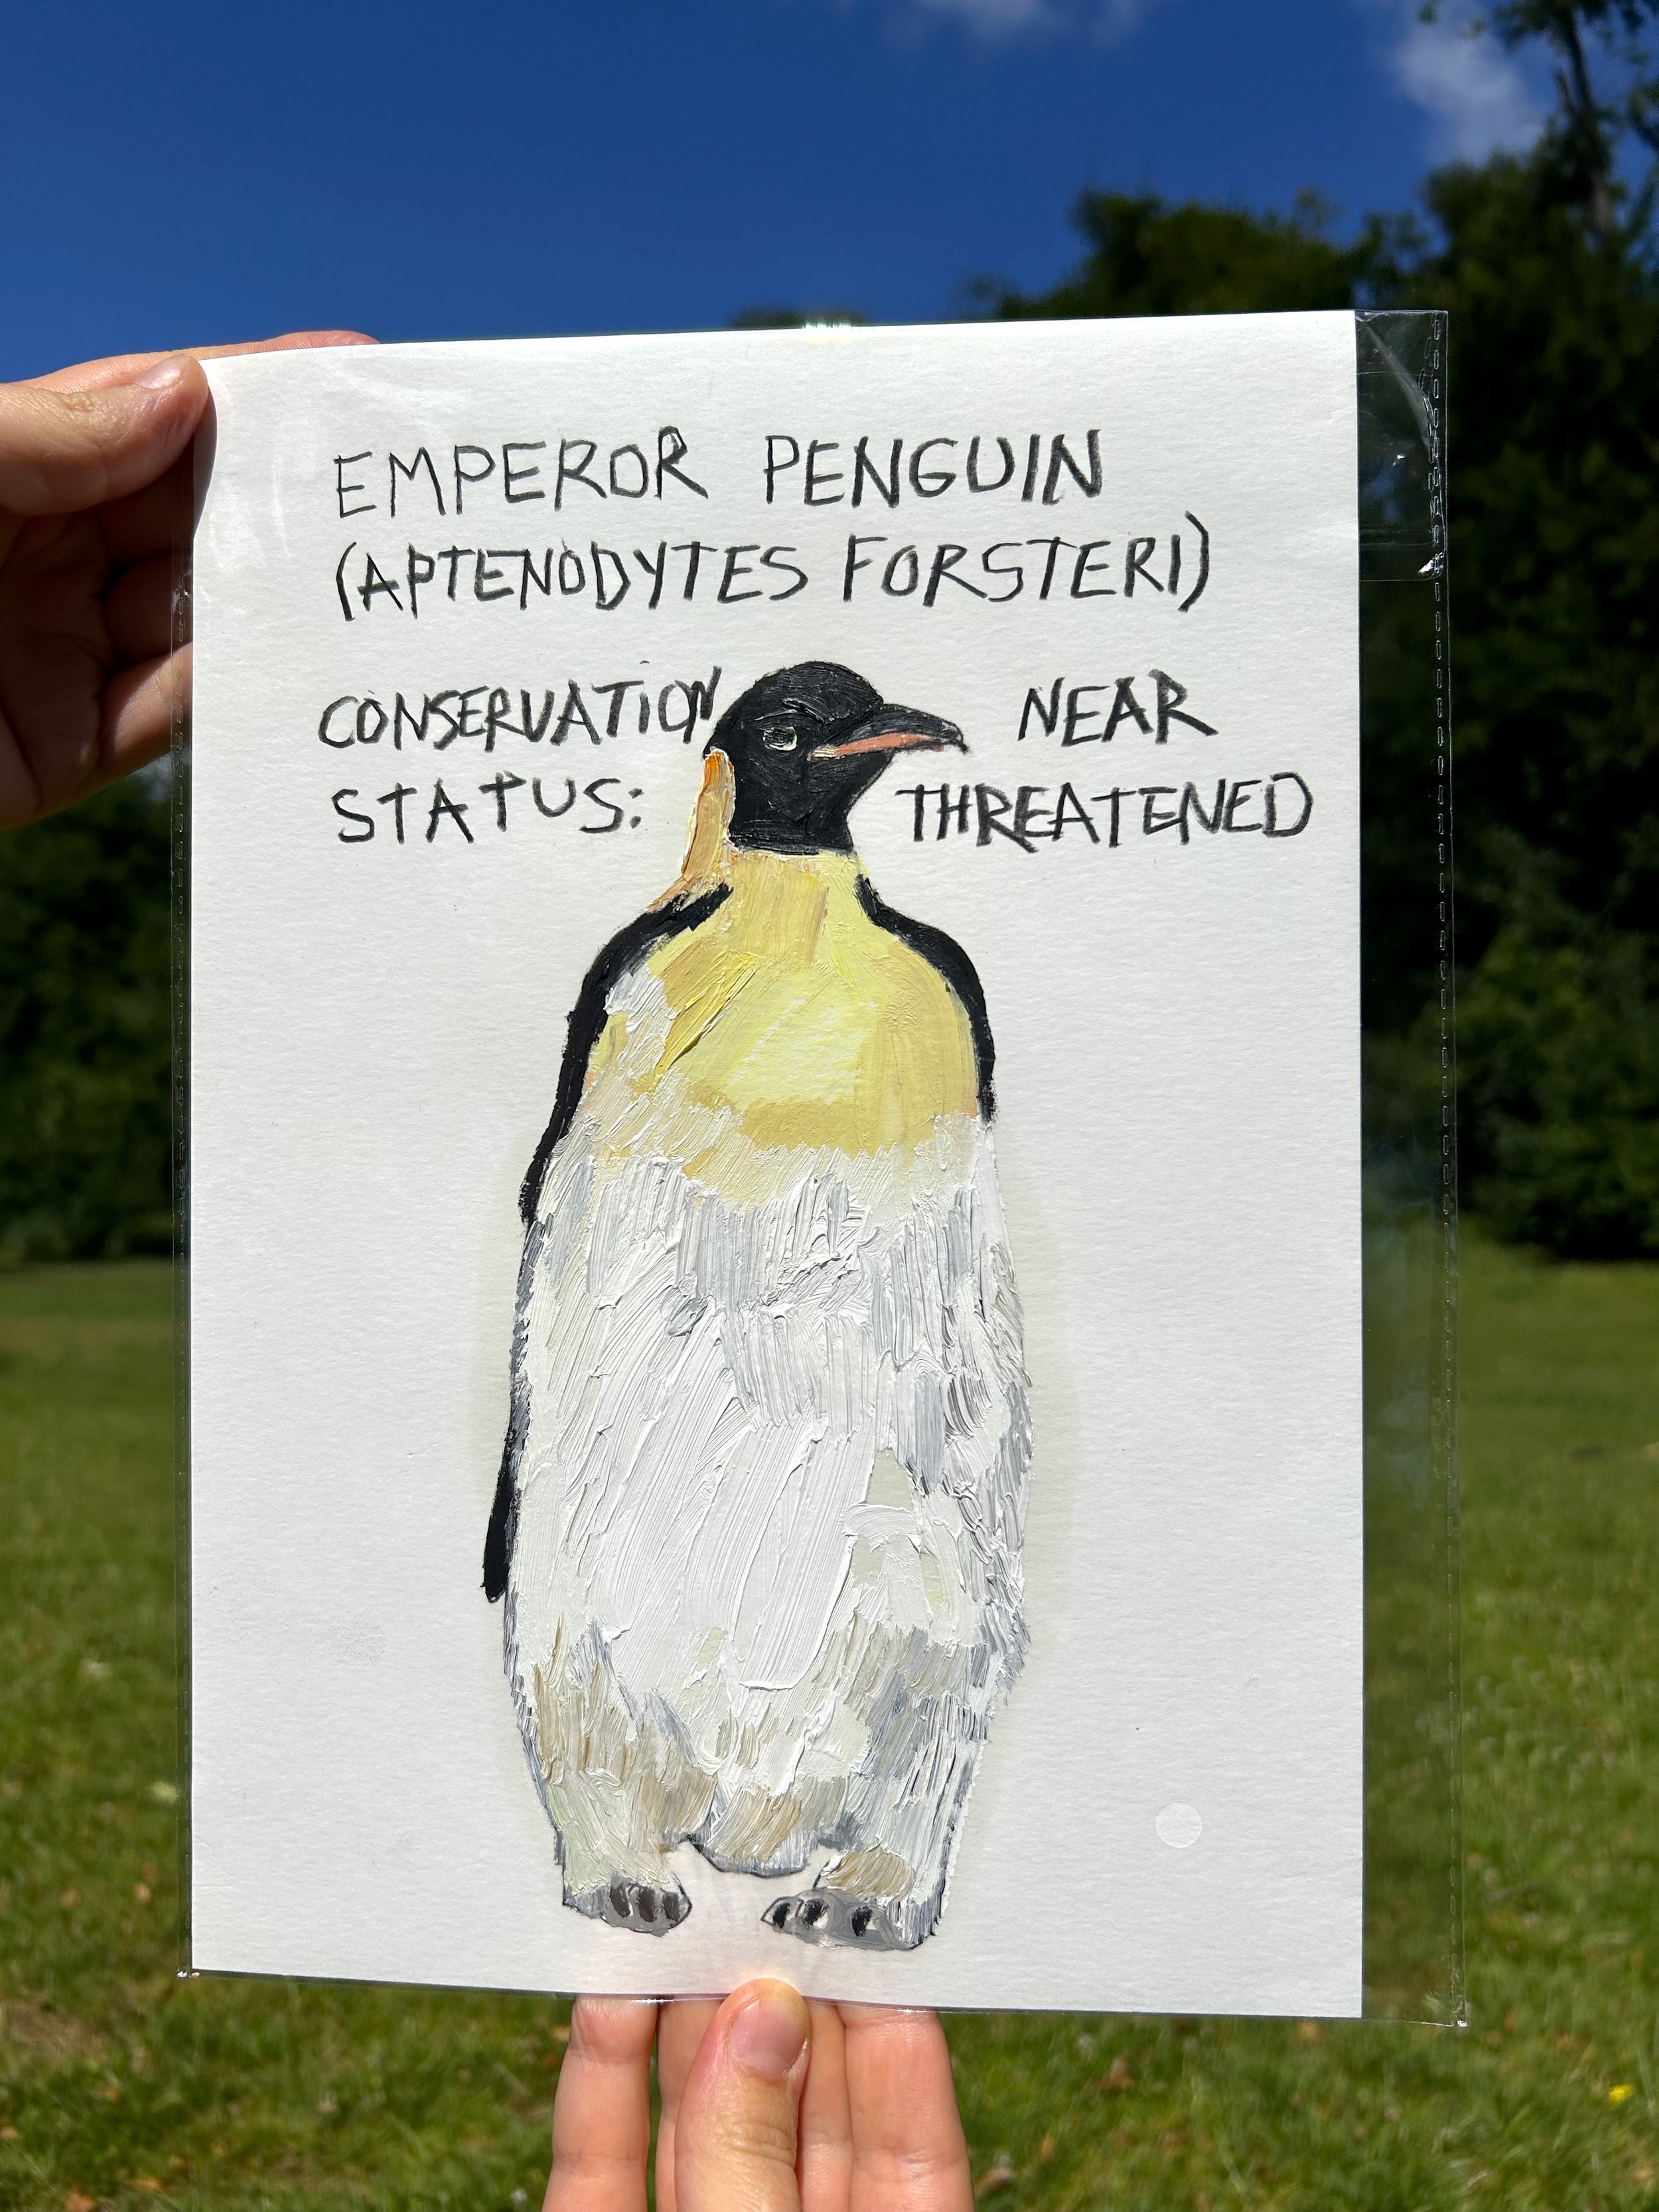 EMPEROR PENGUIN
(APTENODYTES FORSTERI)
CONSERVATION NEAR
STATUS: THREATENED